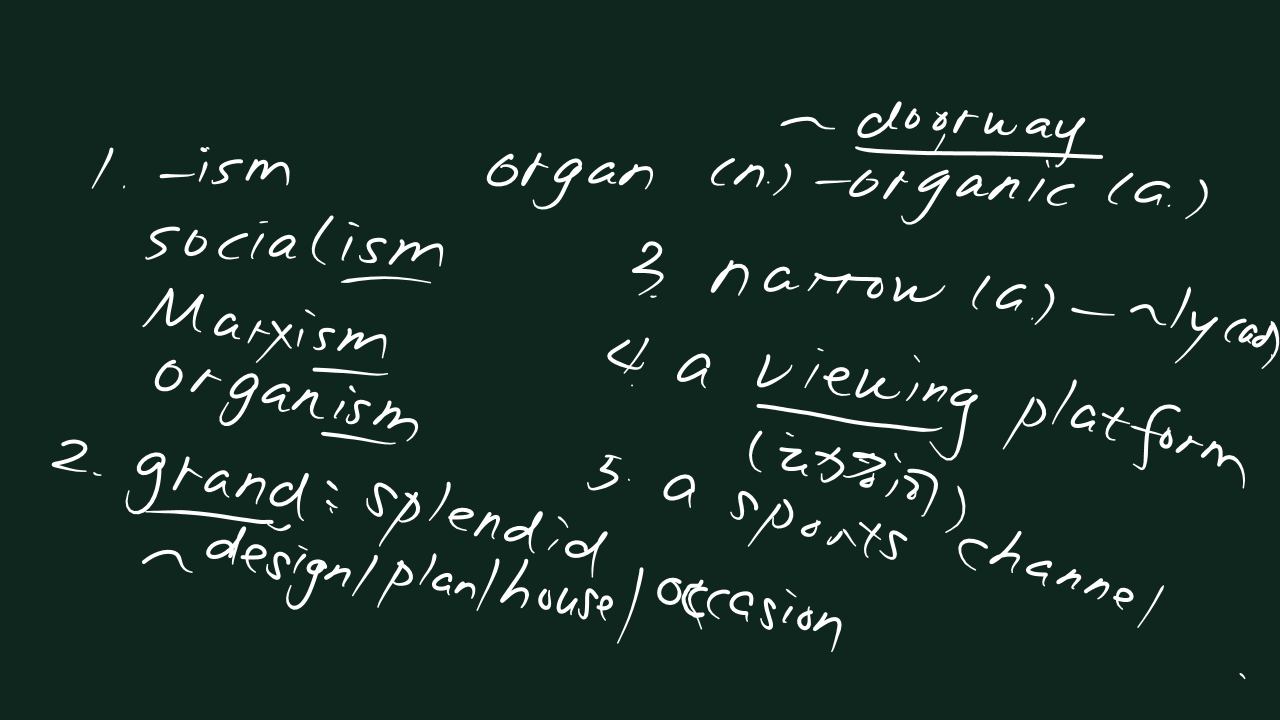 1. -ism
socialism
Marxism
organism
2. grand: splendid
~ design/plan/house/occasion
~ doorway
organ (n.) - organic (a.)
3. narrow (a.) - ~ly (ad)
4. a viewing platform
5. a sports channel